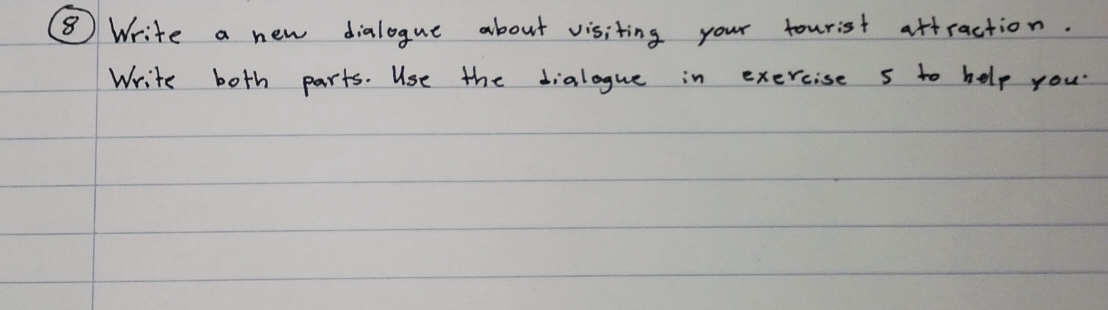 8 Write a new dialogue about visiting your tourist attraction.
Write both parts. Use the dialogue in exercise 5 to help you.